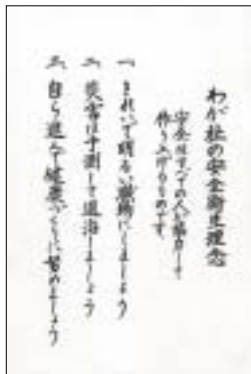 わが社の安全衛生理念
安全はすべての人が協力して
作り上げるものです
一、きれいで明るい職場にしましょう
二、災害は予測して退治しましょう
三、自ら進んで健康づくりに努めましょう